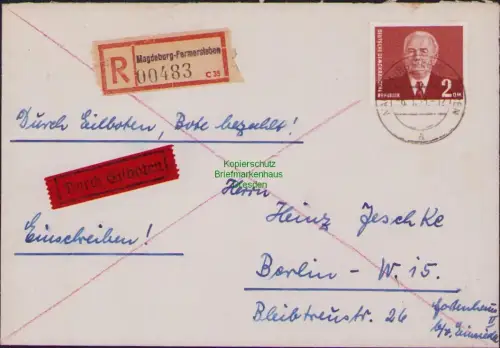 R
Magdeburg-Fermersleben
00483
C 35
DEUTSCHE DEMOKRATISCHE
REPUBLIK
2 DM
Durch Eilboten, Bote bezahlt!
Durch Eilboten!
Einschreiben!
Kopierschutz
Briefmarkenhaus
Dresden
Herrn
Heinz Jeschke
Berlin - W. 15.
Bleibtreustr. 26
Gartenhaus
II
a